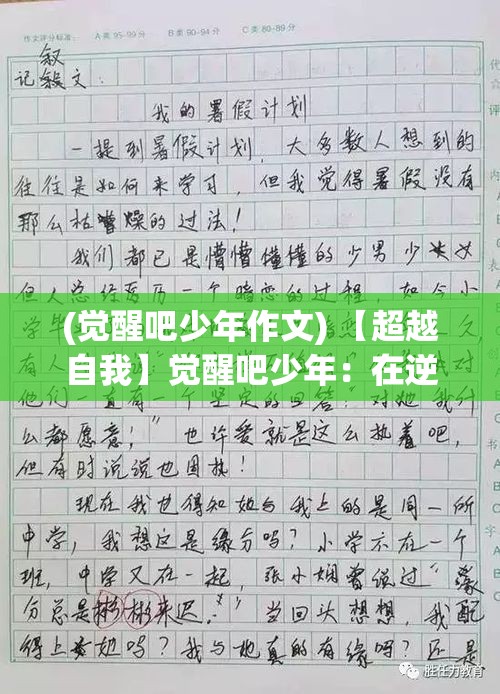 作文评分标准： A类 95-99分 B类 90-94分 C类 80-89分
叙
记叙文：
我的暑假计划
一提到暑假计划，大多数人想到的
往往是如何来学习，但我觉得暑假没有
那么枯燥的过法！
我们都已是懵懵懂懂的少男少女
但人总经历一个暗恋的过程，如今小
(觉醒吧少年作文)【超越
自我】觉醒吧少年：在逆
么都愿意！”也许爱就是这么执着吧，
但有时说说也固执！
现在我也得知她与我上的是同一所
中学，我想这是缘分吗？小学不在一个
班，中学又在一起，张小娴曾说过“缘
分总是彬彬来迟。”当回头想想，我配
得上她吗？我与她真的有缘吗？还是
胜任力教育